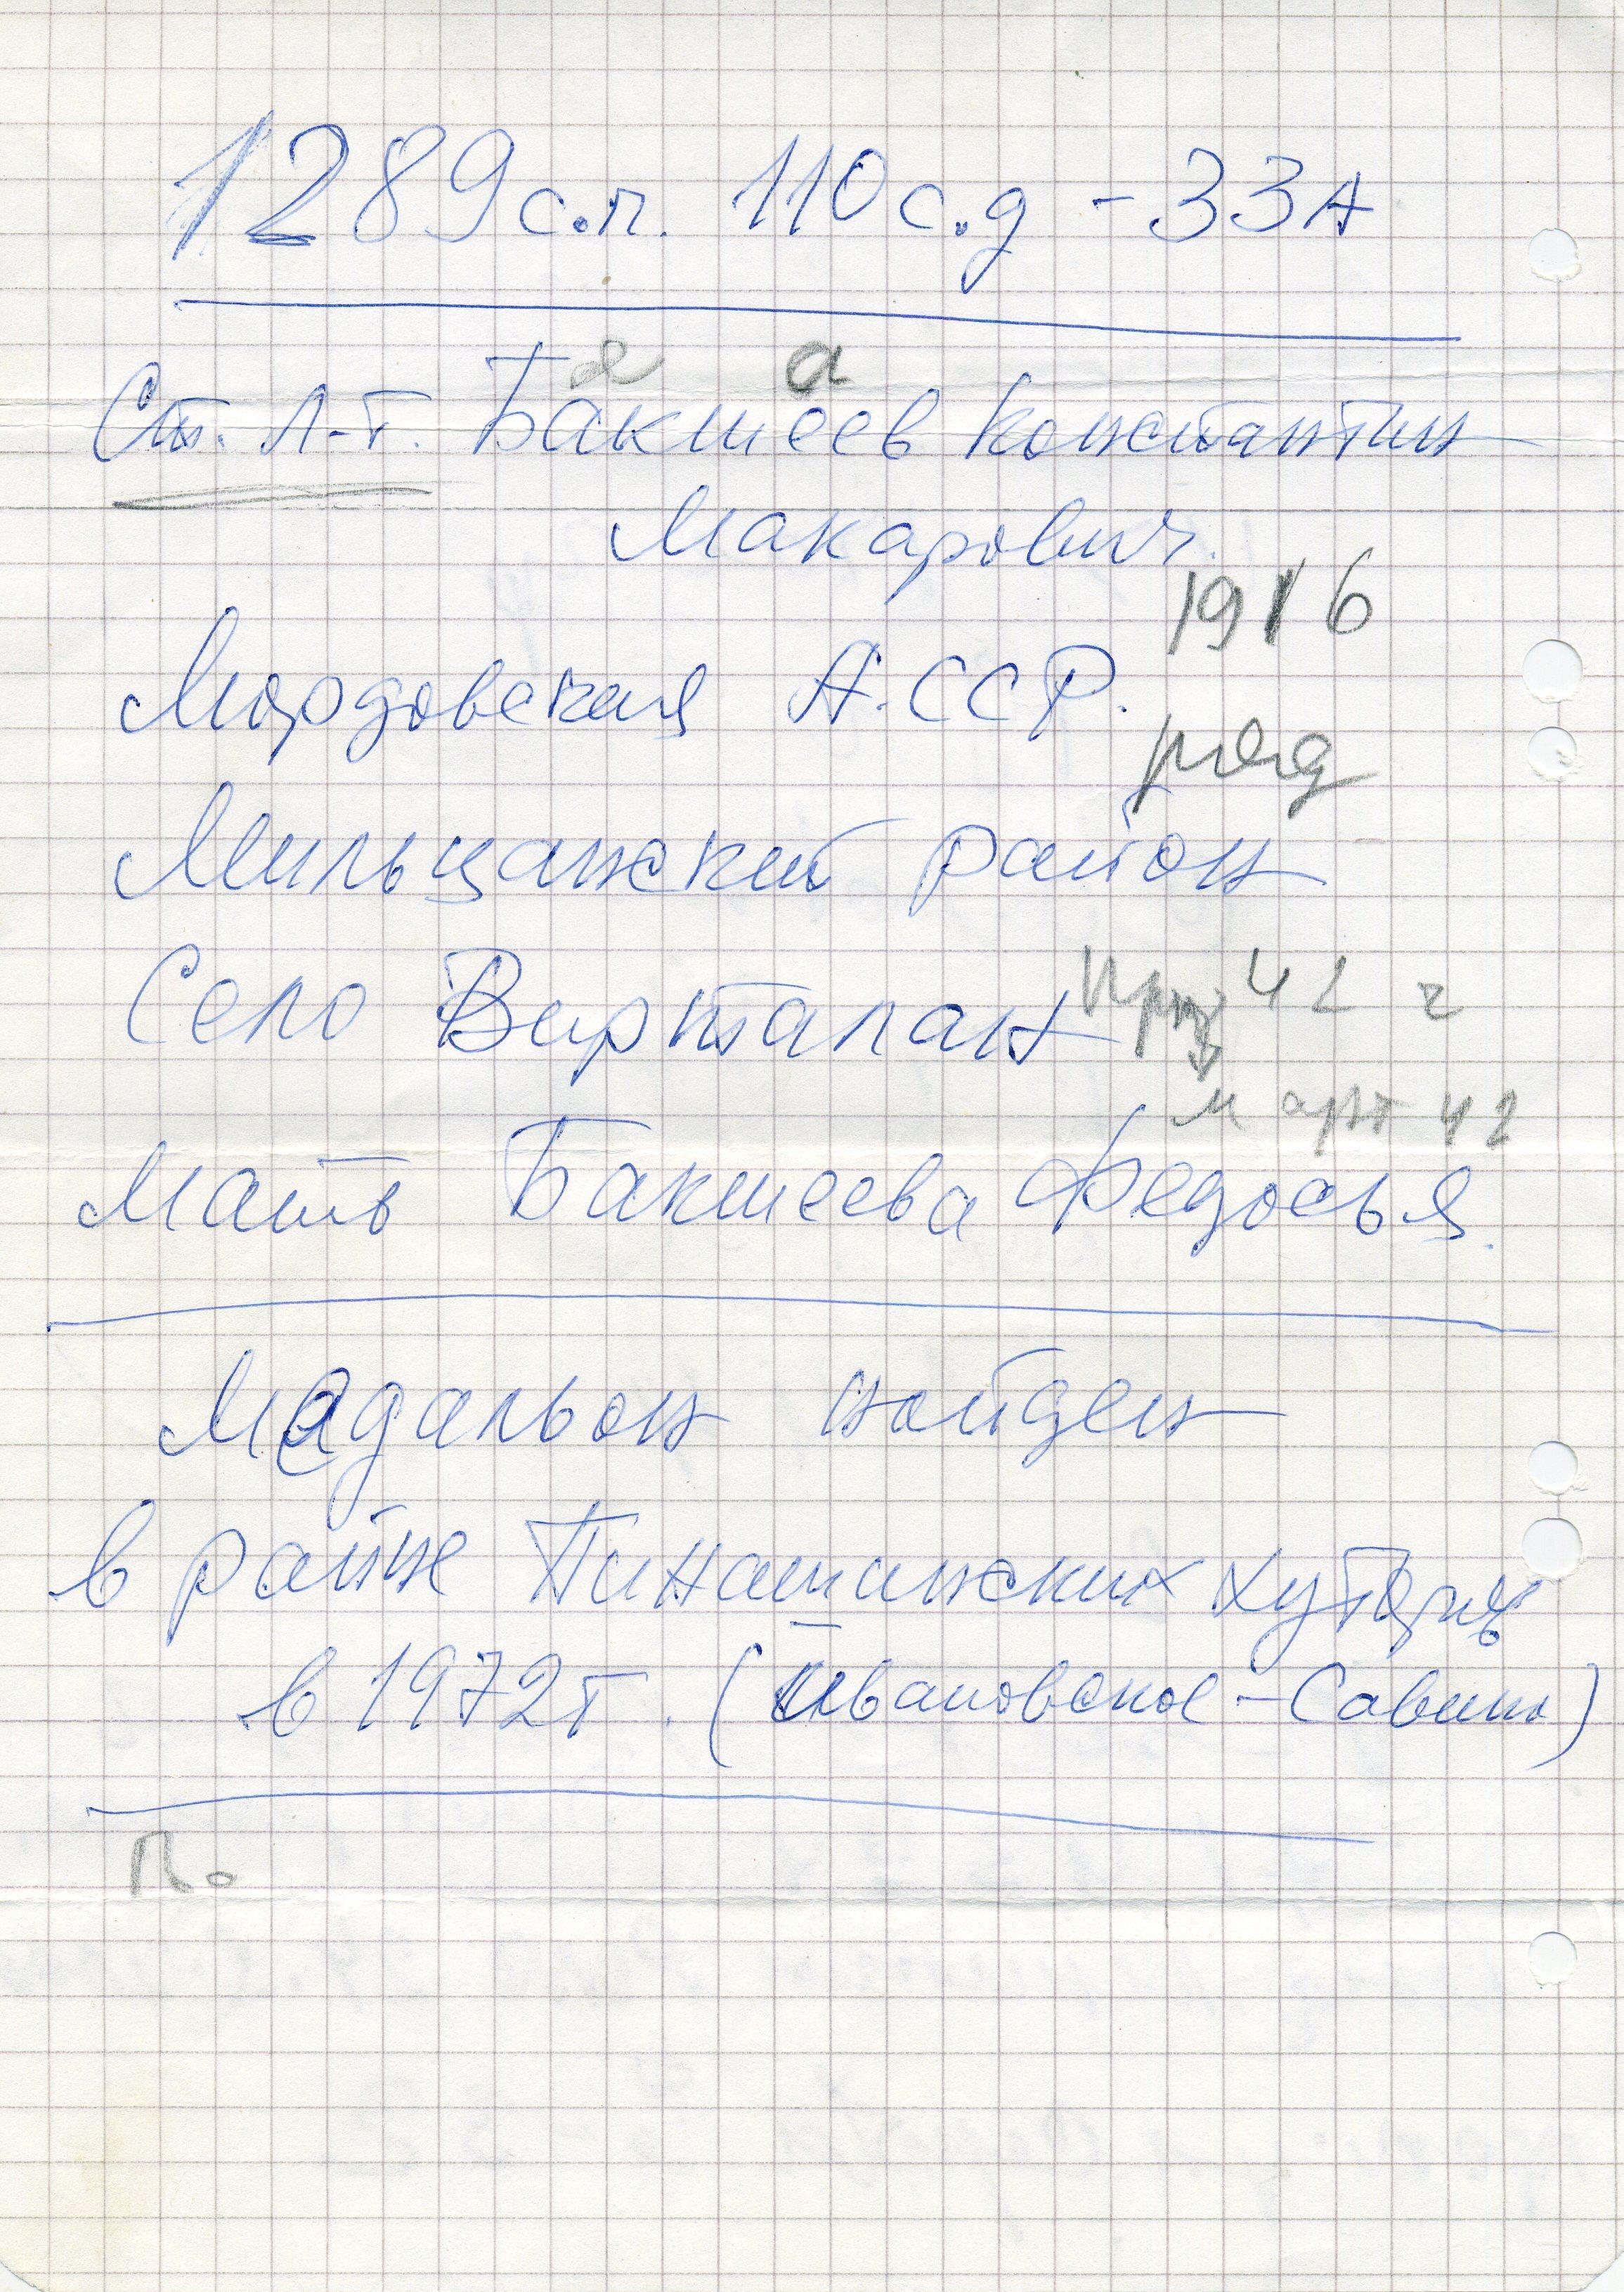 1289 с.п. 110 с.д - 33А
я а
Ст. л-т. Бакшеев Константин
Макарович.
1916
Мордовская А.ССР.
рожд
Мильцанский район
Село Вирталан
42 г
март 42
Мать Бакшеева Федосья.
Медальон найден
в районе Пинашинских хуторов
в 1972 г. (Ивановское - Савино)
По